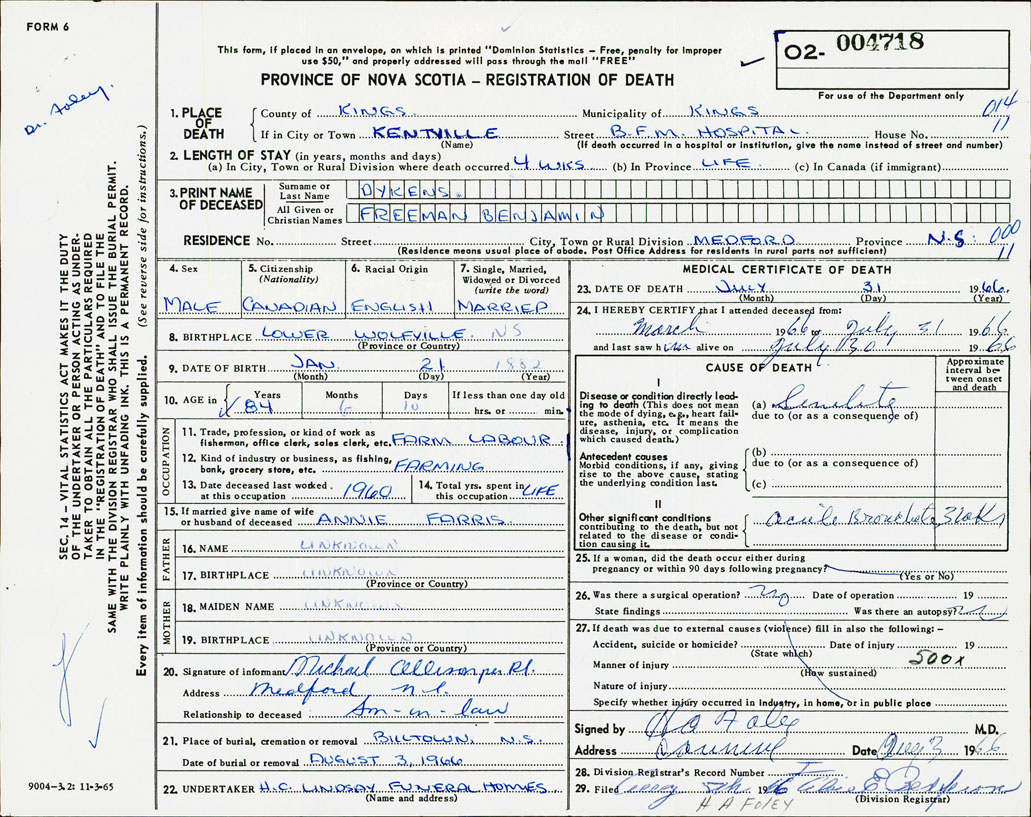 FORM 6
This form, if placed in an envelope, on which is printed "Dominion Statistics – Free, penalty for improper
use $50," and properly addressed will pass through the mail "FREE"
PROVINCE OF NOVA SCOTIA – REGISTRATION OF DEATH
02- 004718
For use of the Department only
Dr. Foley.
1. PLACE OF DEATH
County of KINGS Municipality of KINGS 014
11
If in City or Town KENTVILLE Street B.F.M. HOSPITAL House No.
(Name) (If death occurred in a hospital or institution, give the name instead of street and number)
2. LENGTH OF STAY (in years, months and days)
(a) In City, Town or Rural Division where death occurred 4 WKS (b) In Province LIFE (c) In Canada (if immigrant)
3. PRINT NAME OF DECEASED
Surname or Last Name DYKENS.
All Given or Christian Names FREEMAN BENJAMIN
RESIDENCE No. Street City, Town or Rural Division MEDFORD Province N.S. 000
11
(Residence means usual place of abode. Post Office Address for residents in rural parts not sufficient)
4. Sex MALE
5. Citizenship (Nationality) CANADIAN
6. Racial Origin ENGLISH
7. Single, Married, Widowed or Divorced (write the word) MARRIED
8. BIRTHPLACE LOWER WOLFVILLE NS
(Province or Country)
9. DATE OF BIRTH JAN. 21 1882
(Month) (Day) (Year)
10. AGE in Years 84 Months 6 Days 10 If less than one day old hrs. or min.
OCCUPATION
11. Trade, profession, or kind of work as
fisherman, office clerk, sales clerk, etc. FARM LABOUR
12. Kind of industry or business, as fishing,
bank, grocery store, etc. FARMING
13. Date deceased last worked at this occupation 1960
14. Total yrs. spent in this occupation LIFE
15. If married give name of wife
or husband of deceased ANNIE FARRIS
FATHER
16. NAME UNKNOWN
17. BIRTHPLACE UNKNOWN
(Province or Country)
MOTHER
18. MAIDEN NAME UNKNOWN
19. BIRTHPLACE UNKNOWN
(Province or Country)
20. Signature of informant Michael Allison per
Address Medford N.S.
Relationship to deceased Son-in-law
21. Place of burial, cremation or removal BILLTOWN, N.S.
Date of burial or removal AUGUST 3, 1966
22. UNDERTAKER H.C. LINDSAY FUNERAL HOMES
(Name and address)
MEDICAL CERTIFICATE OF DEATH
23. DATE OF DEATH JULY 31 1966.
(Month) (Day) (Year)
24. I HEREBY CERTIFY that I attended deceased from:
March 1966 to July 31 1966
and last saw him alive on July 30 1966
CAUSE OF DEATH
Approximate interval between onset and death
I
Disease or condition directly lead-
ing to death (This does not mean
the mode of dying, e.g., heart fail-
ure, asthenia, etc. It means the
disease, injury, or complication
which caused death.)
(a) Senility
due to (or as a consequence of)
Antecedent causes
Morbid conditions, if any, giving
rise to the above cause, stating
the underlying condition last.
(b)
due to (or as a consequence of)
(c)
II
Other significant conditions
contributing to the death, but not
related to the disease or condi-
tion causing it.
Acute Bronchitis
25. If a woman, did the death occur either during
pregnancy or within 90 days following pregnancy?
(Yes or No)
26. Was there a surgical operation? No Date of operation 19
State findings Was there an autopsy? No
27. If death was due to external causes (violence) fill in also the following: –
Accident, suicide or homicide? Date of injury 19
(State which)
Manner of injury 500x
(How sustained)
Nature of injury
Specify whether injury occurred in industry, in home, or in public place
Signed by H A Foley M.D.
Address Canning Date Aug 3 1966
28. Division Registrar's Record Number
29. Filed Aug 5th 1966
H A FOLEY (Division Registrar)
SEC. 14 – VITAL STATISTICS ACT MAKES IT THE DUTY
OF THE UNDERTAKER OR PERSON ACTING AS UNDER-
TAKER TO OBTAIN ALL THE PARTICULARS REQUIRED
IN THE "REGISTRATION OF DEATH" AND TO FILE THE
SAME WITH THE DIVISION REGISTRAR WHO SHALL ISSUE THE BURIAL PERMIT.
WRITE PLAINLY WITH UNFADING INK. THIS IS A PERMANENT RECORD.
Every item of information should be carefully supplied. (See reverse side for instructions.)
9004–3.2: 11-3-65